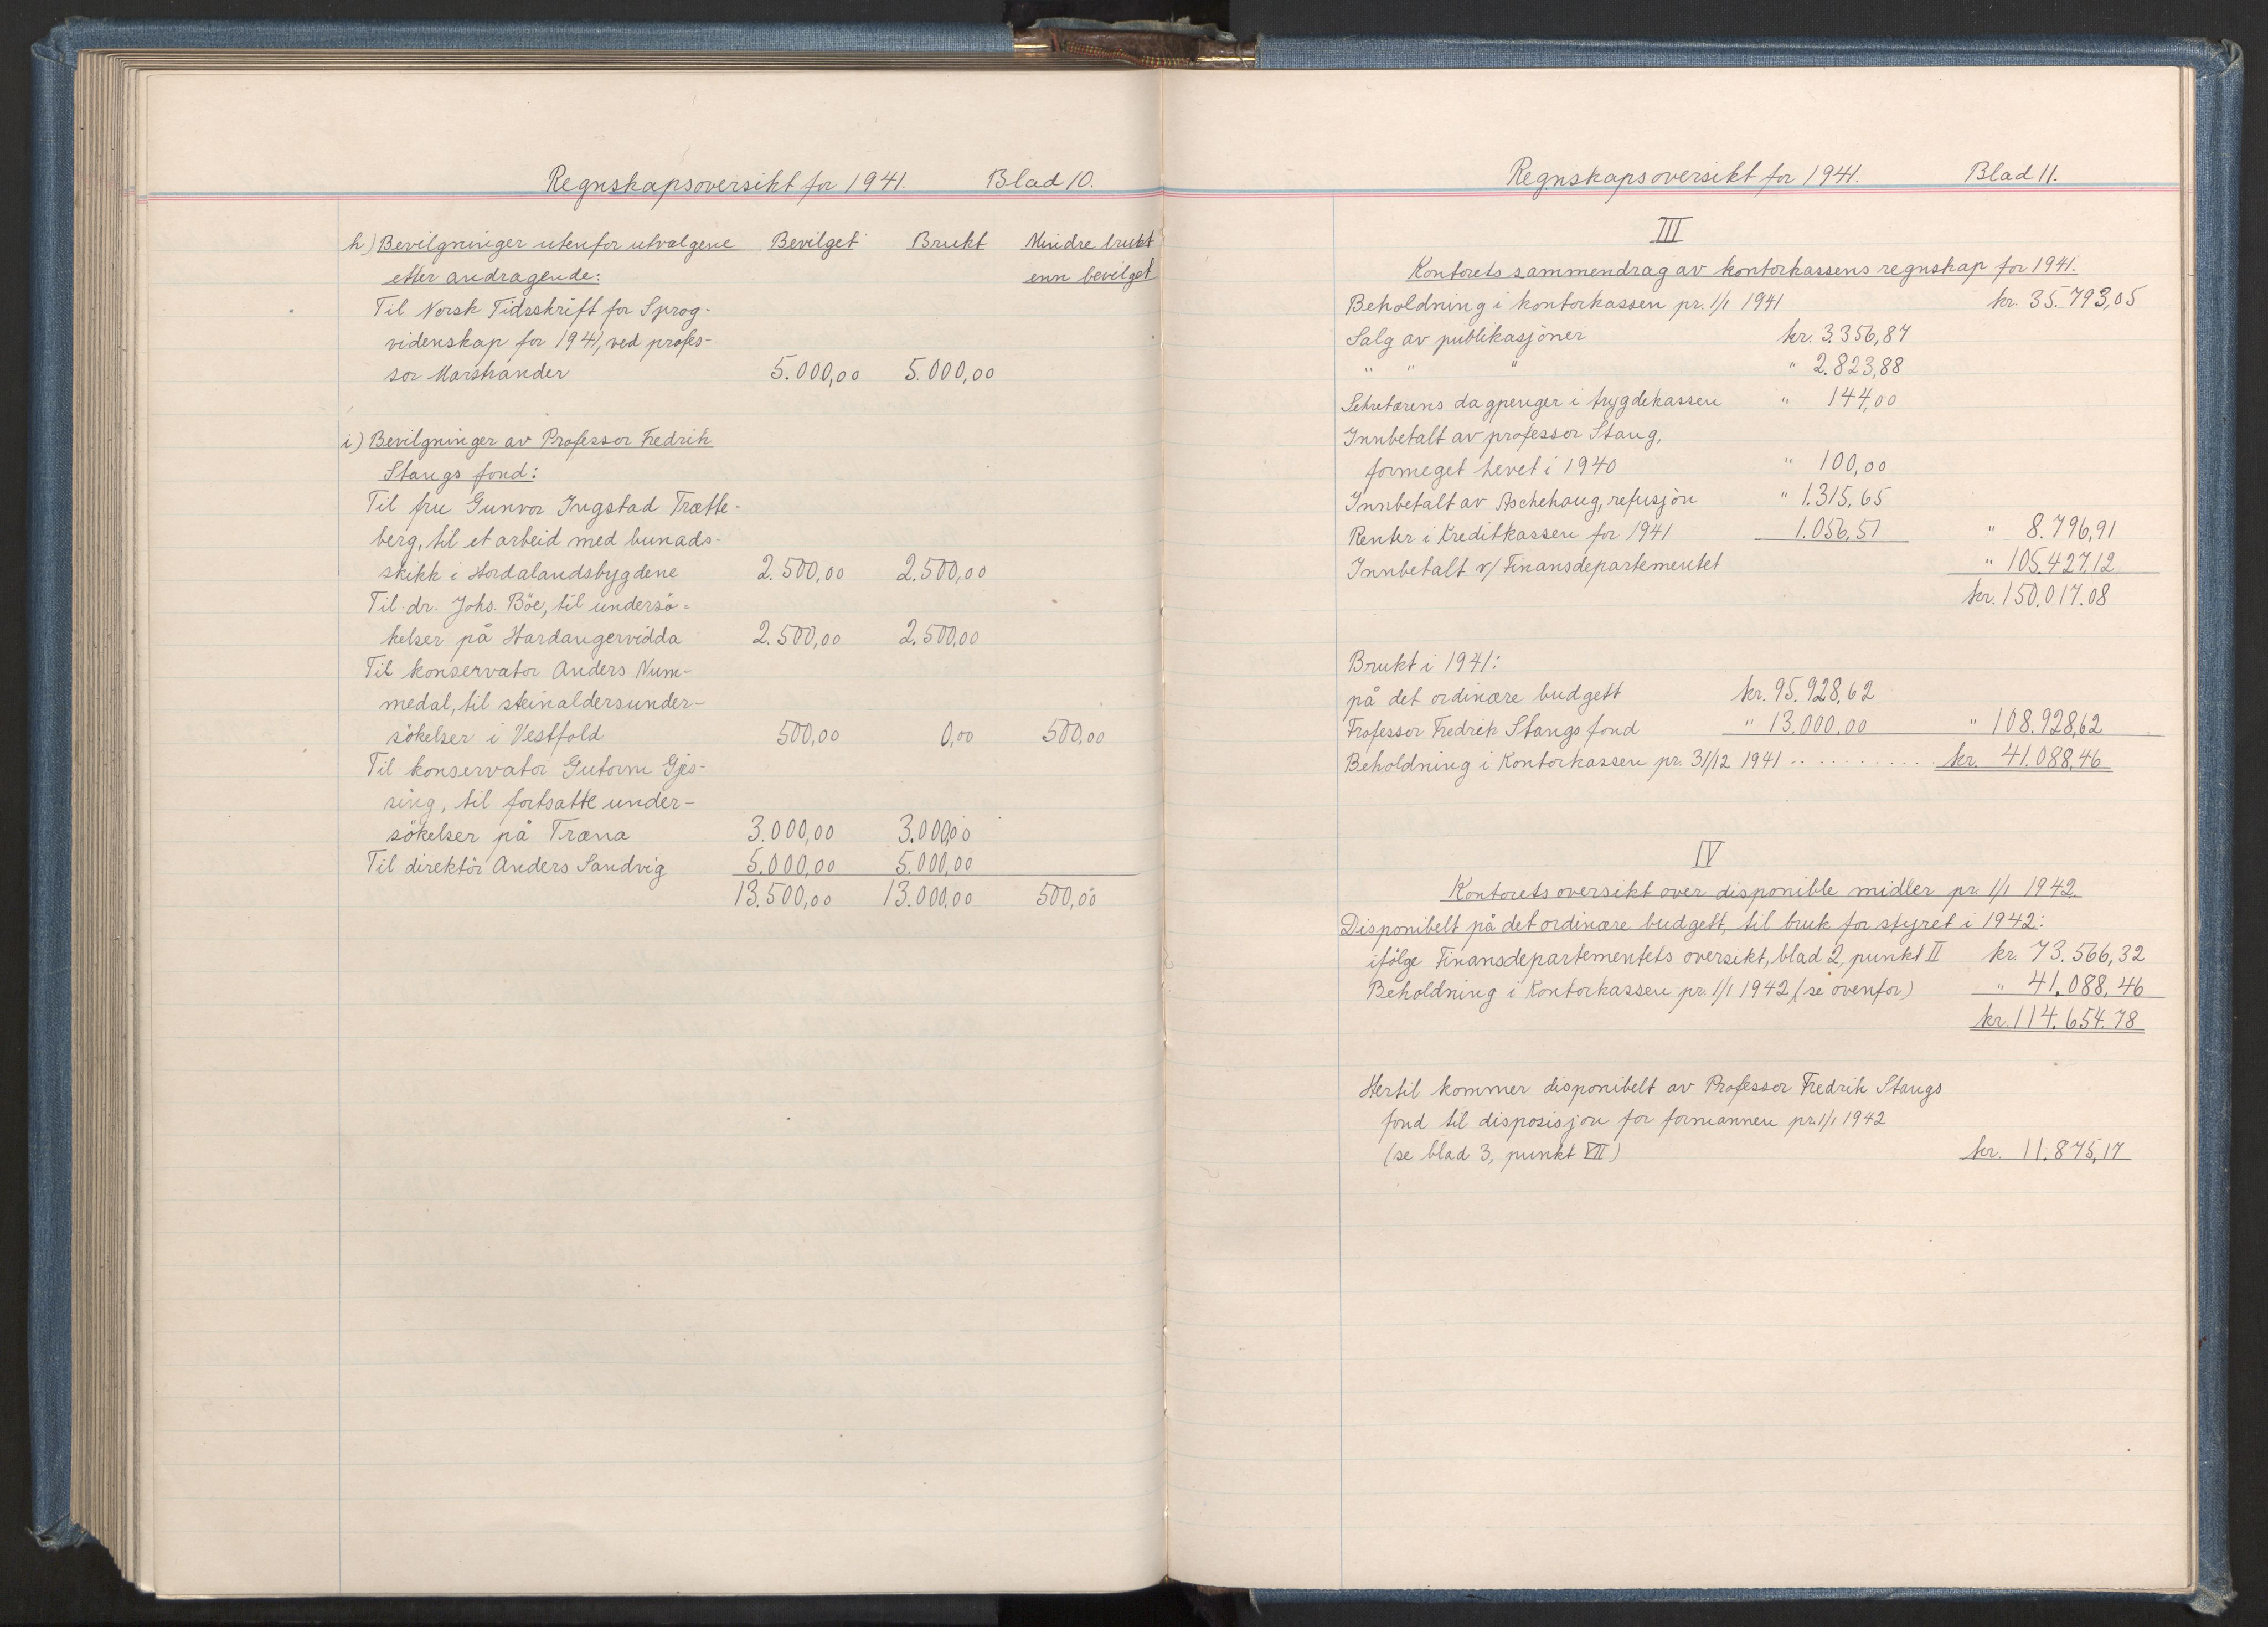 Regnskapsoversikt for 1941. Blad 10.
h) Bevilgninger utenfor utvalgene Bevilget Brukt Mindre brukt
efter andragende: enn bevilget
Til Norsk Tidsskrift for Sprog-
videnskap for 1941, ved profes-
sor Marstrander 5.000,00 5.000,00
i) Bevilgninger av Professor Fredrik
Stangs fond:
Til fru Gunvor Ingstad Trætte-
berg, til et arbeid med bunads-
skikk i Hordalandsbygdene 2.500,00 2.500,00
Til dr. Johs. Böe, til undersö-
kelser på Hardangervidda 2.500,00 2.500,00
Til konservator Anders Num-
medal, til steinaldersunder-
sökelser i Vestfold 500,00 0,00 500,00
Til konservator Gutorm Gjes-
sing, til fortsatte under-
sökelser på Træna 3.000,00 3.000,00
Til direktör Anders Sandvig 5.000,00 5.000,00
13.500,00 13.000,00 500,00
Regnskapsoversikt for 1941. Blad 11.
III
Kontorets sammendrag av kontorkassens regnskap for 1941.
Beholdning i kontorkassen pr. 1/1 1941 kr. 35.793,05
Salg av publikasjoner kr. 3.356,87
" " " " 2.823,88
Sekretærens dagpenger i trygdekassen " 144,00
Innbetalt av professor Stang,
formeget hevet i 1940 " 100,00
Innbetalt av Aschehoug, refusjon " 1.315,65
Renter i Kreditkassen for 1941 1.056,51 " 8.796,91
Innbetalt v/ Finansdepartementet " 105.427,12
kr. 150.017.08
Brukt i 1941:
på det ordinære budgett kr. 95.928,62
Professor Fredrik Stangs fond " 13.000.00 " 108.928,62
Beholdning i Kontorkassen pr. 31/12 1941 . . . . . . . . . . . kr. 41.088,46
IV
Kontorets oversikt over disponible midler pr. 1/1 1942.
Disponibelt på det ordinære budgett, til bruk for styret i 1942:
ifölge Finansdepartementets oversikt, blad 2, punkt II kr. 73.566,32
Beholdning i Kontorkassen pr. 1/1 1942 (se ovenfor) " 41.088,46
kr. 114.654.78
Hertil kommer disponibelt av Professor Fredrik Stangs
fond til disposisjon for formannen pr. 1/1 1942
(se blad 3, punkt VII) kr. 11.875,17